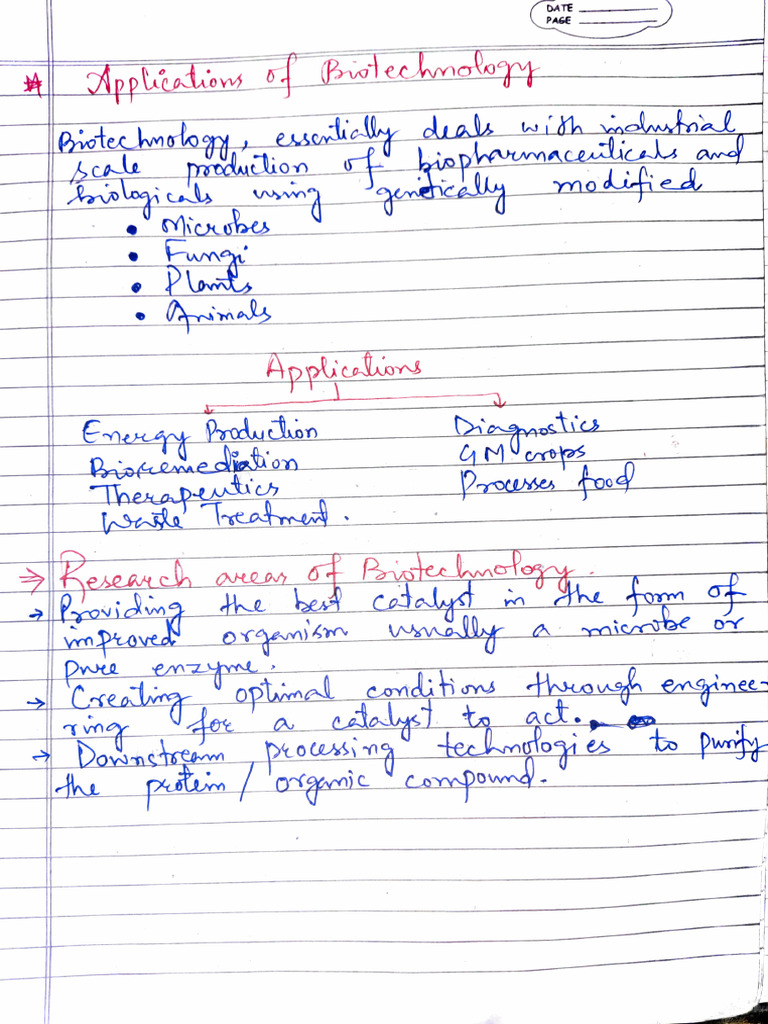 DATE
PAGE
* Applications of Biotechnology
Biotechnology, essentially deals with industrial
scale production of biopharmaceuticals and
biologicals using genetically modified
• Microbes
• Fungi
• Plants
• Animals
Applications
Energy Production
Bioremediation
Therapeutics
Waste Treatment.
Diagnostics
GM crops
Processes food
⇒ Research areas of Biotechnology.
→ Providing the best catalyst in the form of
improved organism usually a microbe or
pure enzyme.
→ Creating optimal conditions through enginee-
ring for a catalyst to act.
→ Downstream processing technologies to purify
the protein/organic compound.